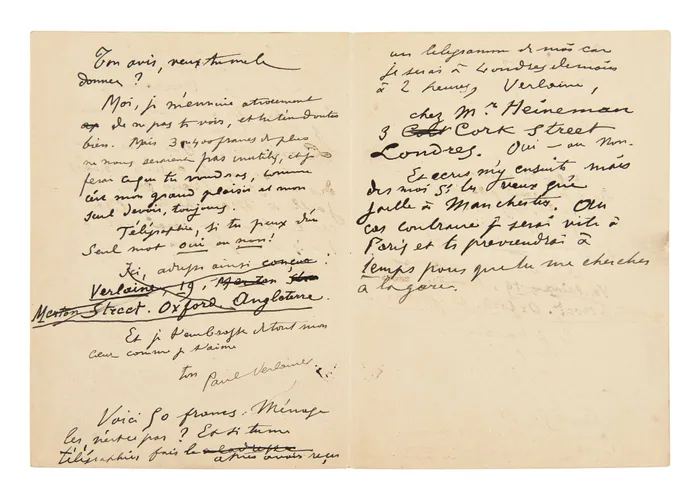 Ton avis, veux-tu me le
donner ?
Moi, je m'ennuie atrocement
de ne pas te voir, et tu t'en doutes
bien. Mais 3 ou 400 francs de plus
ne nous seraient pas inutiles, et je
ferai ce que tu voudras, comme
c'est mon grand plaisir et mon
seul devoir, toujours.
Télégraphie, si tu peux d'un
seul mot oui ou non!
Ici, adresse ainsi conçue :
Verlaine, 19, Merton
Merton Street. Oxford. Angleterre.
Et je t'embrasse de tout mon
cœur comme je t'aime
ton Paul Verlaine
Voici 50 francs. Ménage
les, n'est-ce pas ? Et si tu me
télégraphies fais le
après avoir reçu
un télégramme de moi car
je serai à Londres demain
à 2 heures, Verlaine,
chez Mr Heineman
3 Cork Street
Londres. Oui – ou Non.
Et écris m'y ensuite mais
dis moi si tu veux que
j'aille à Manchester. Au
cas contraire je serai vite à
Paris et te préviendrai à
temps pour que tu me cherches
à la gare.